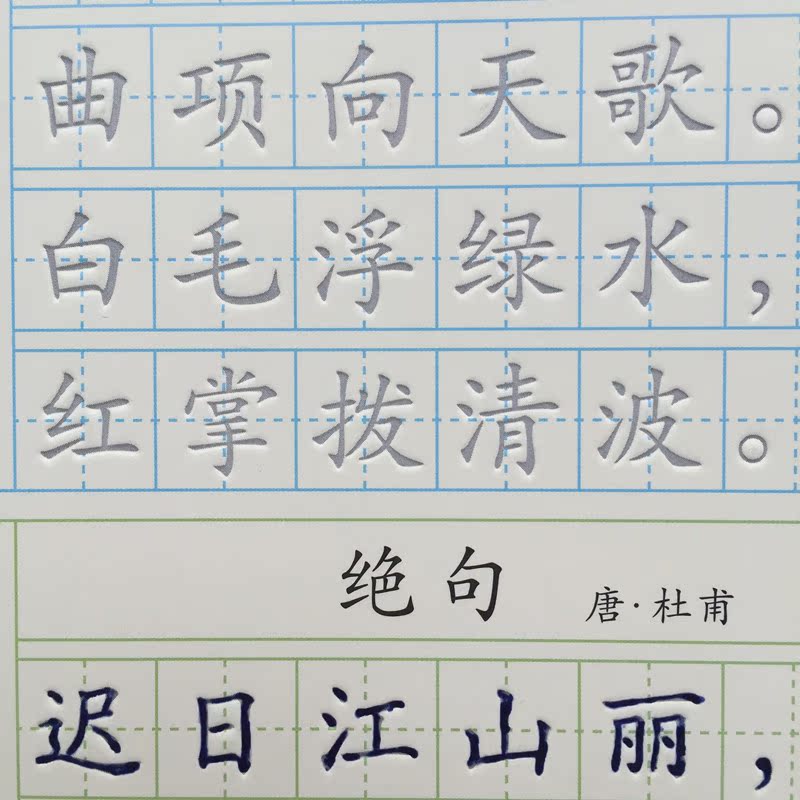 曲项向天歌。
白毛浮绿水，
红掌拨清波。
绝句
唐·杜甫
迟日江山丽，